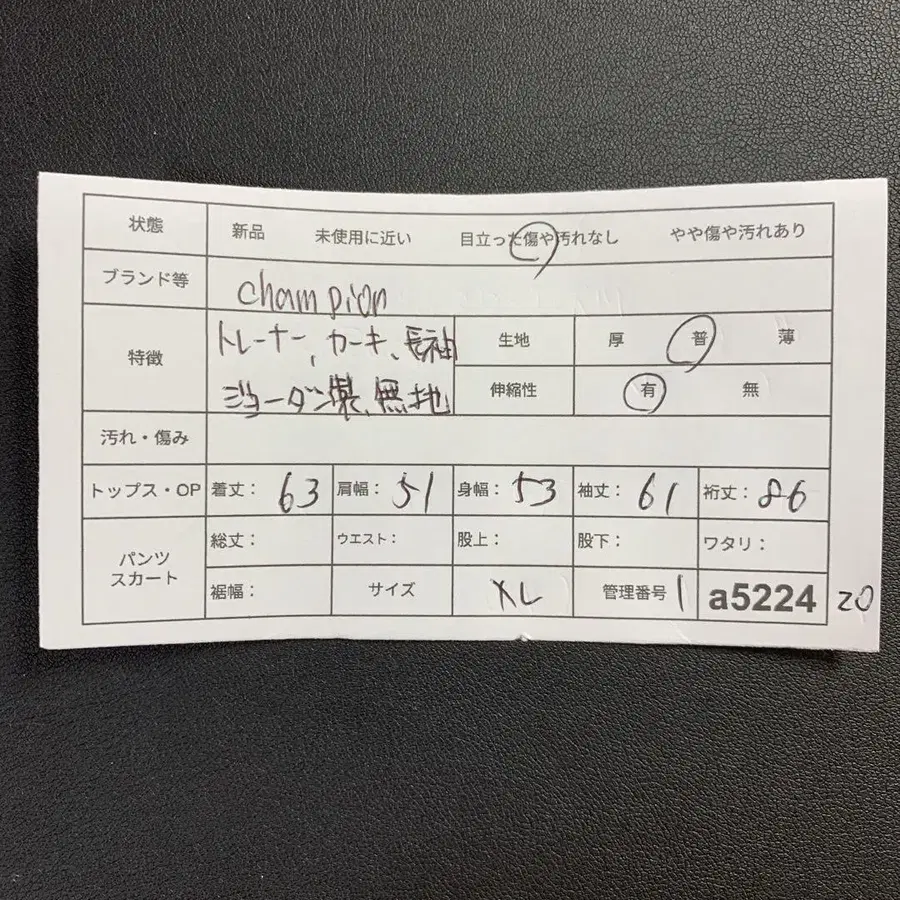 状態 新品 未使用に近い 目立った傷や汚れなし やや傷や汚れあり
ブランド等 champion
特徴 トレーナー、カーキ、長袖 生地 厚 普 薄
ジョーダン製、無地 伸縮性 有 無
汚れ・傷み
トップス・OP 着丈: 63 肩幅: 51 身幅: 53 袖丈: 61 裄丈: 86
パンツ スカート 総丈: ウエスト: 股上: 股下: ワタリ:
裾幅: サイズ XL 管理番号 1 a5224 20